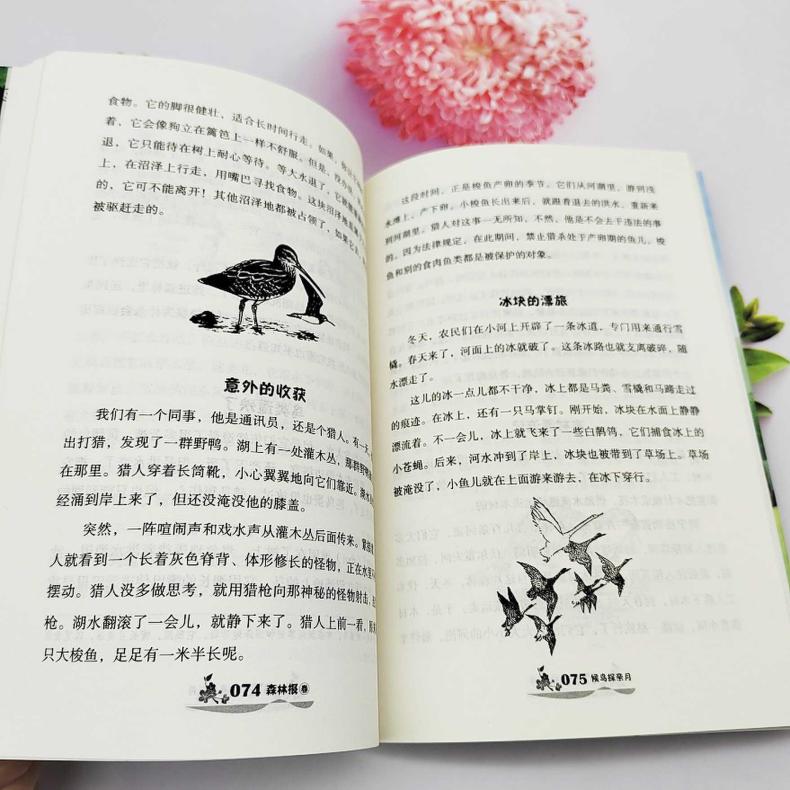 食物。它的脚很健壮，适合长时间行走。如果，
着，它会像狗立在篱笆上一样不舒服。但是，没办法，
退，它只能待在树上耐心等待。等大水退了，它就
上，在沼泽上行走，用嘴巴寻找食物。这块沼泽地
的，它可不能离开！其他沼泽地都被占领了，如果它
被驱赶走的。
意外的收获
我们有一个同事，他是通讯员，还是个猎人。有一天，
出打猎，发现了一群野鸭。湖上有一处灌木丛，那群野鸭
在那里。猎人穿着长筒靴，小心翼翼地向它们靠近。
经涌到岸上来了，但还没淹没他的膝盖。
突然，一阵喧闹声和戏水声从灌木丛后面传来。
人就看到一个长着灰色脊背、体形修长的怪物，正在水里
摆动。猎人没多做思考，就用猎枪向那神秘的怪物射击，
枪。湖水翻滚了一会儿，就静下来了。猎人上前一看，
只大梭鱼，足足有一米半长呢。
074 森林报 春
这段时间，正是梭鱼产卵的季节。它们从河湖里，游到浅
水滩上，产下卵。小梭鱼长出来后，就跟着退去的洪水，重新来
到河湖里。猎人对这事一无所知，不然，他是不会去干违法的事
的。因为法律规定，在此期间，禁止猎杀处于产卵期的鱼儿。梭
鱼和别的食肉鱼类都是被保护的对象。
冰块的漂旅
冬天，农民们在小河上开辟了一条冰道，专门用来通行雪
橇。春天来了，河面上的冰就破了。这条冰路也就支离破碎，随
水漂走了。
这儿的冰一点儿都不干净，冰上都是马粪、雪橇和马蹄走过
的痕迹。在冰上，还有一只马掌钉。刚开始，冰块在水面上静静
漂流着。不一会儿，冰上就飞来了一些白鹡鸰，它们捕食冰上的
小苍蝇。后来，河水冲到了岸上，冰块也被带到了草场上。草场
被淹没了，小鱼儿就在上面游来游去，在冰下穿行。
075 候鸟探亲月